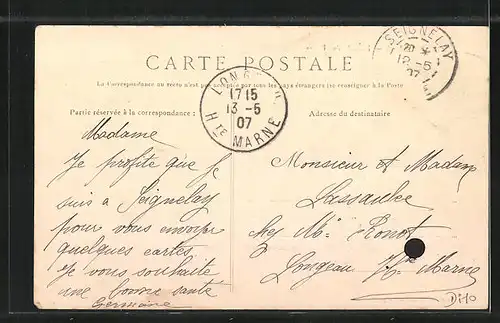 CARTE POSTALE
La Correspondance au recto n'est pas acceptée par tous les pays étrangers (se renseigner à la Poste
Partie réservée à la correspondance :
Adresse du destinataire
SEIGNELAY
12-5
07
17 15
13 -5
07
Hte MARNE
Madame
Je profite que je
suis a Seignelay
pour vous envoyer
quelques cartes
Je vous souhaite
une bonne santé
Germaine
Monsieur et Madame
chez Mr
Longeau Hte Marne